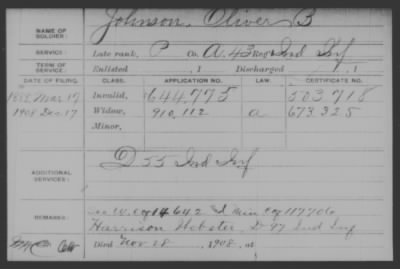 NAME OF SOLDIER: Johnson, Oliver B
SERVICE: Late rank, P Co. A. 43 Reg't Ind Inf
TERM OF SERVICE: Enlisted , 1 Discharged , 1
DATE OF FILING. CLASS. APPLICATION NO. LAW. CERTIFICATE NO.
1888 Mar 17 Invalid, 644,775 503,718
1908 Dec 17 Widow, 910,112 a 673,325
Minor,
ADDITIONAL SERVICES: D 55 Ind Inf
REMARKS: 14642 Min 117706
Harrison Webster, D 97 Ind Inf
Died Nov 28, 1908, at